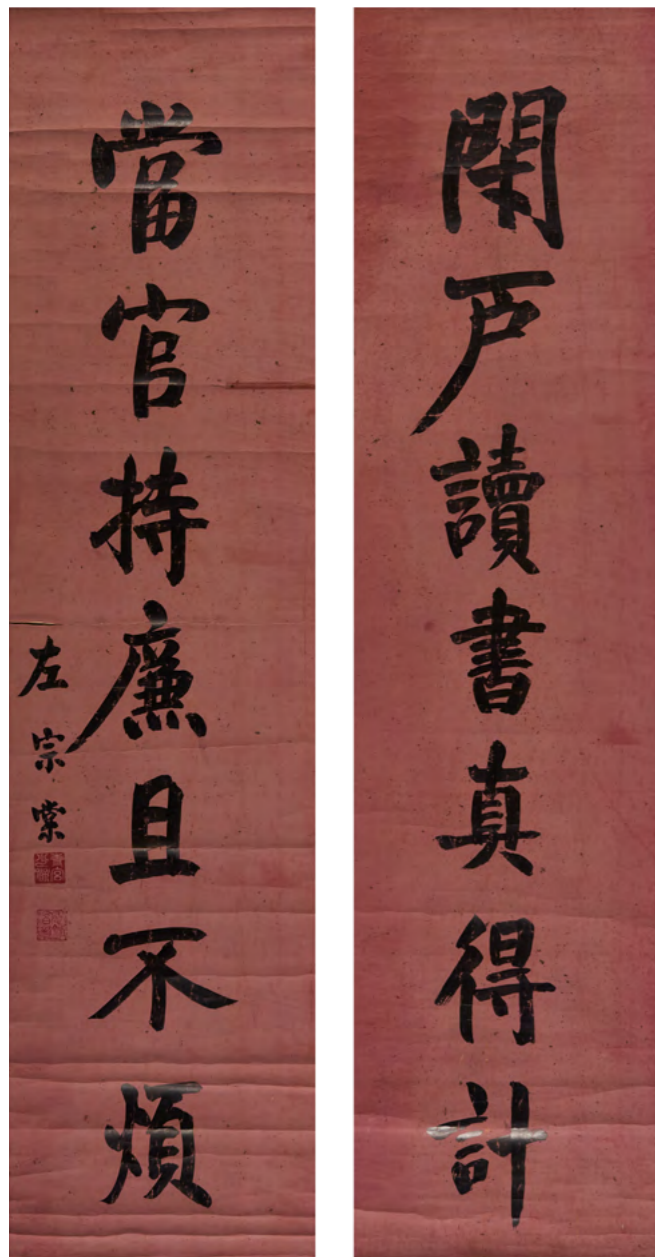 閉戸讀書真得計
當官持廉且不煩
左宗棠